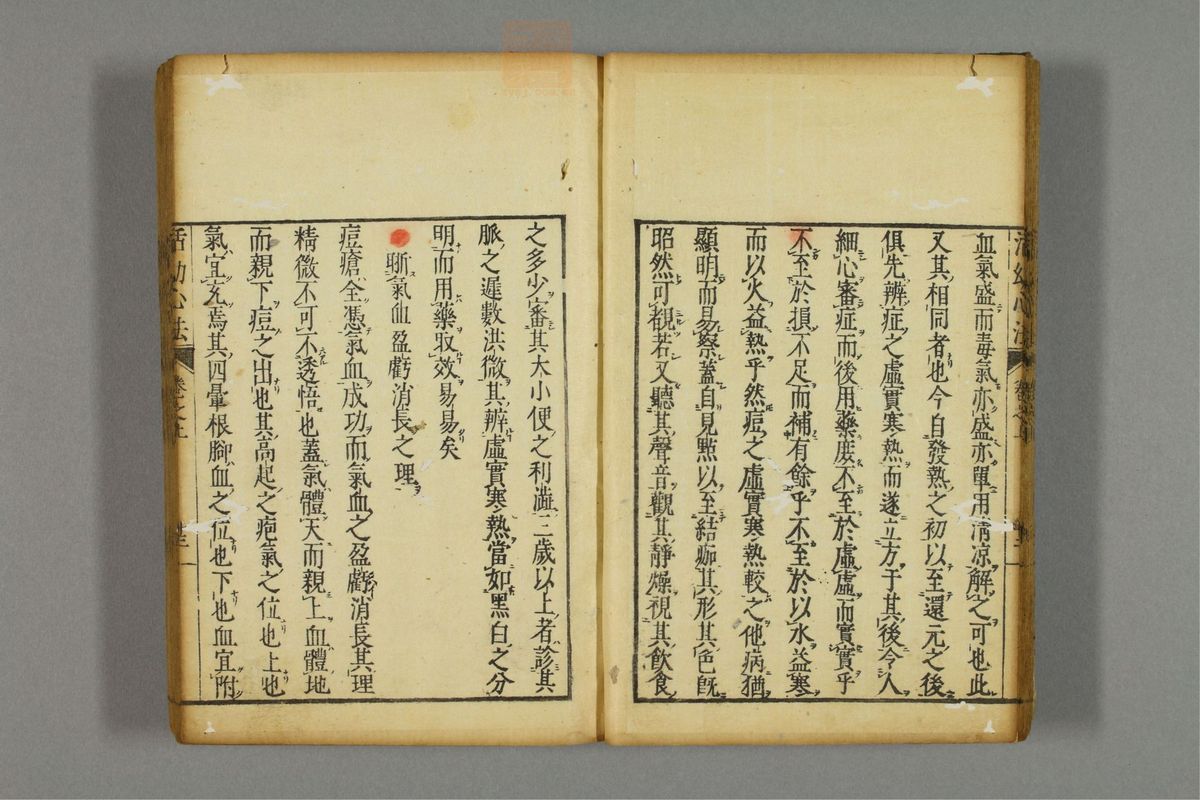 血氣盛而毒氣亦盛亦單用清凉解之可也此
又其相同者也今自發熱之初以至還元之後
俱先辨症之虛實寒熱而遂立方于其後令人
細心審症而後用藥庶不至於虛虛而實實乎
不至於損不足而補有餘乎不至於以水益寒
而以火益熱乎然痘之虛實寒熱較之他病猶
顯明而易察蓋自見點以至結痂其形其色既
昭然可覩若又聽其聲音觀其靜燥視其飲食
之多少審其大小便之利澁三歲以上者診其
脈之遲數洪微其辨虛實寒熱當如黑白之分
明而用藥取效易易矣
晰氣血盈虧消長之理
痘瘡全憑氣血成功而氣血之盈虧消長其理
精微不可不透悟也蓋氣體天而親上血體地
而親下痘之出也其高起之疱氣之位也上也
氣宜充焉其四暈根腳血之位也下也血宜附
活幼心法 卷之上